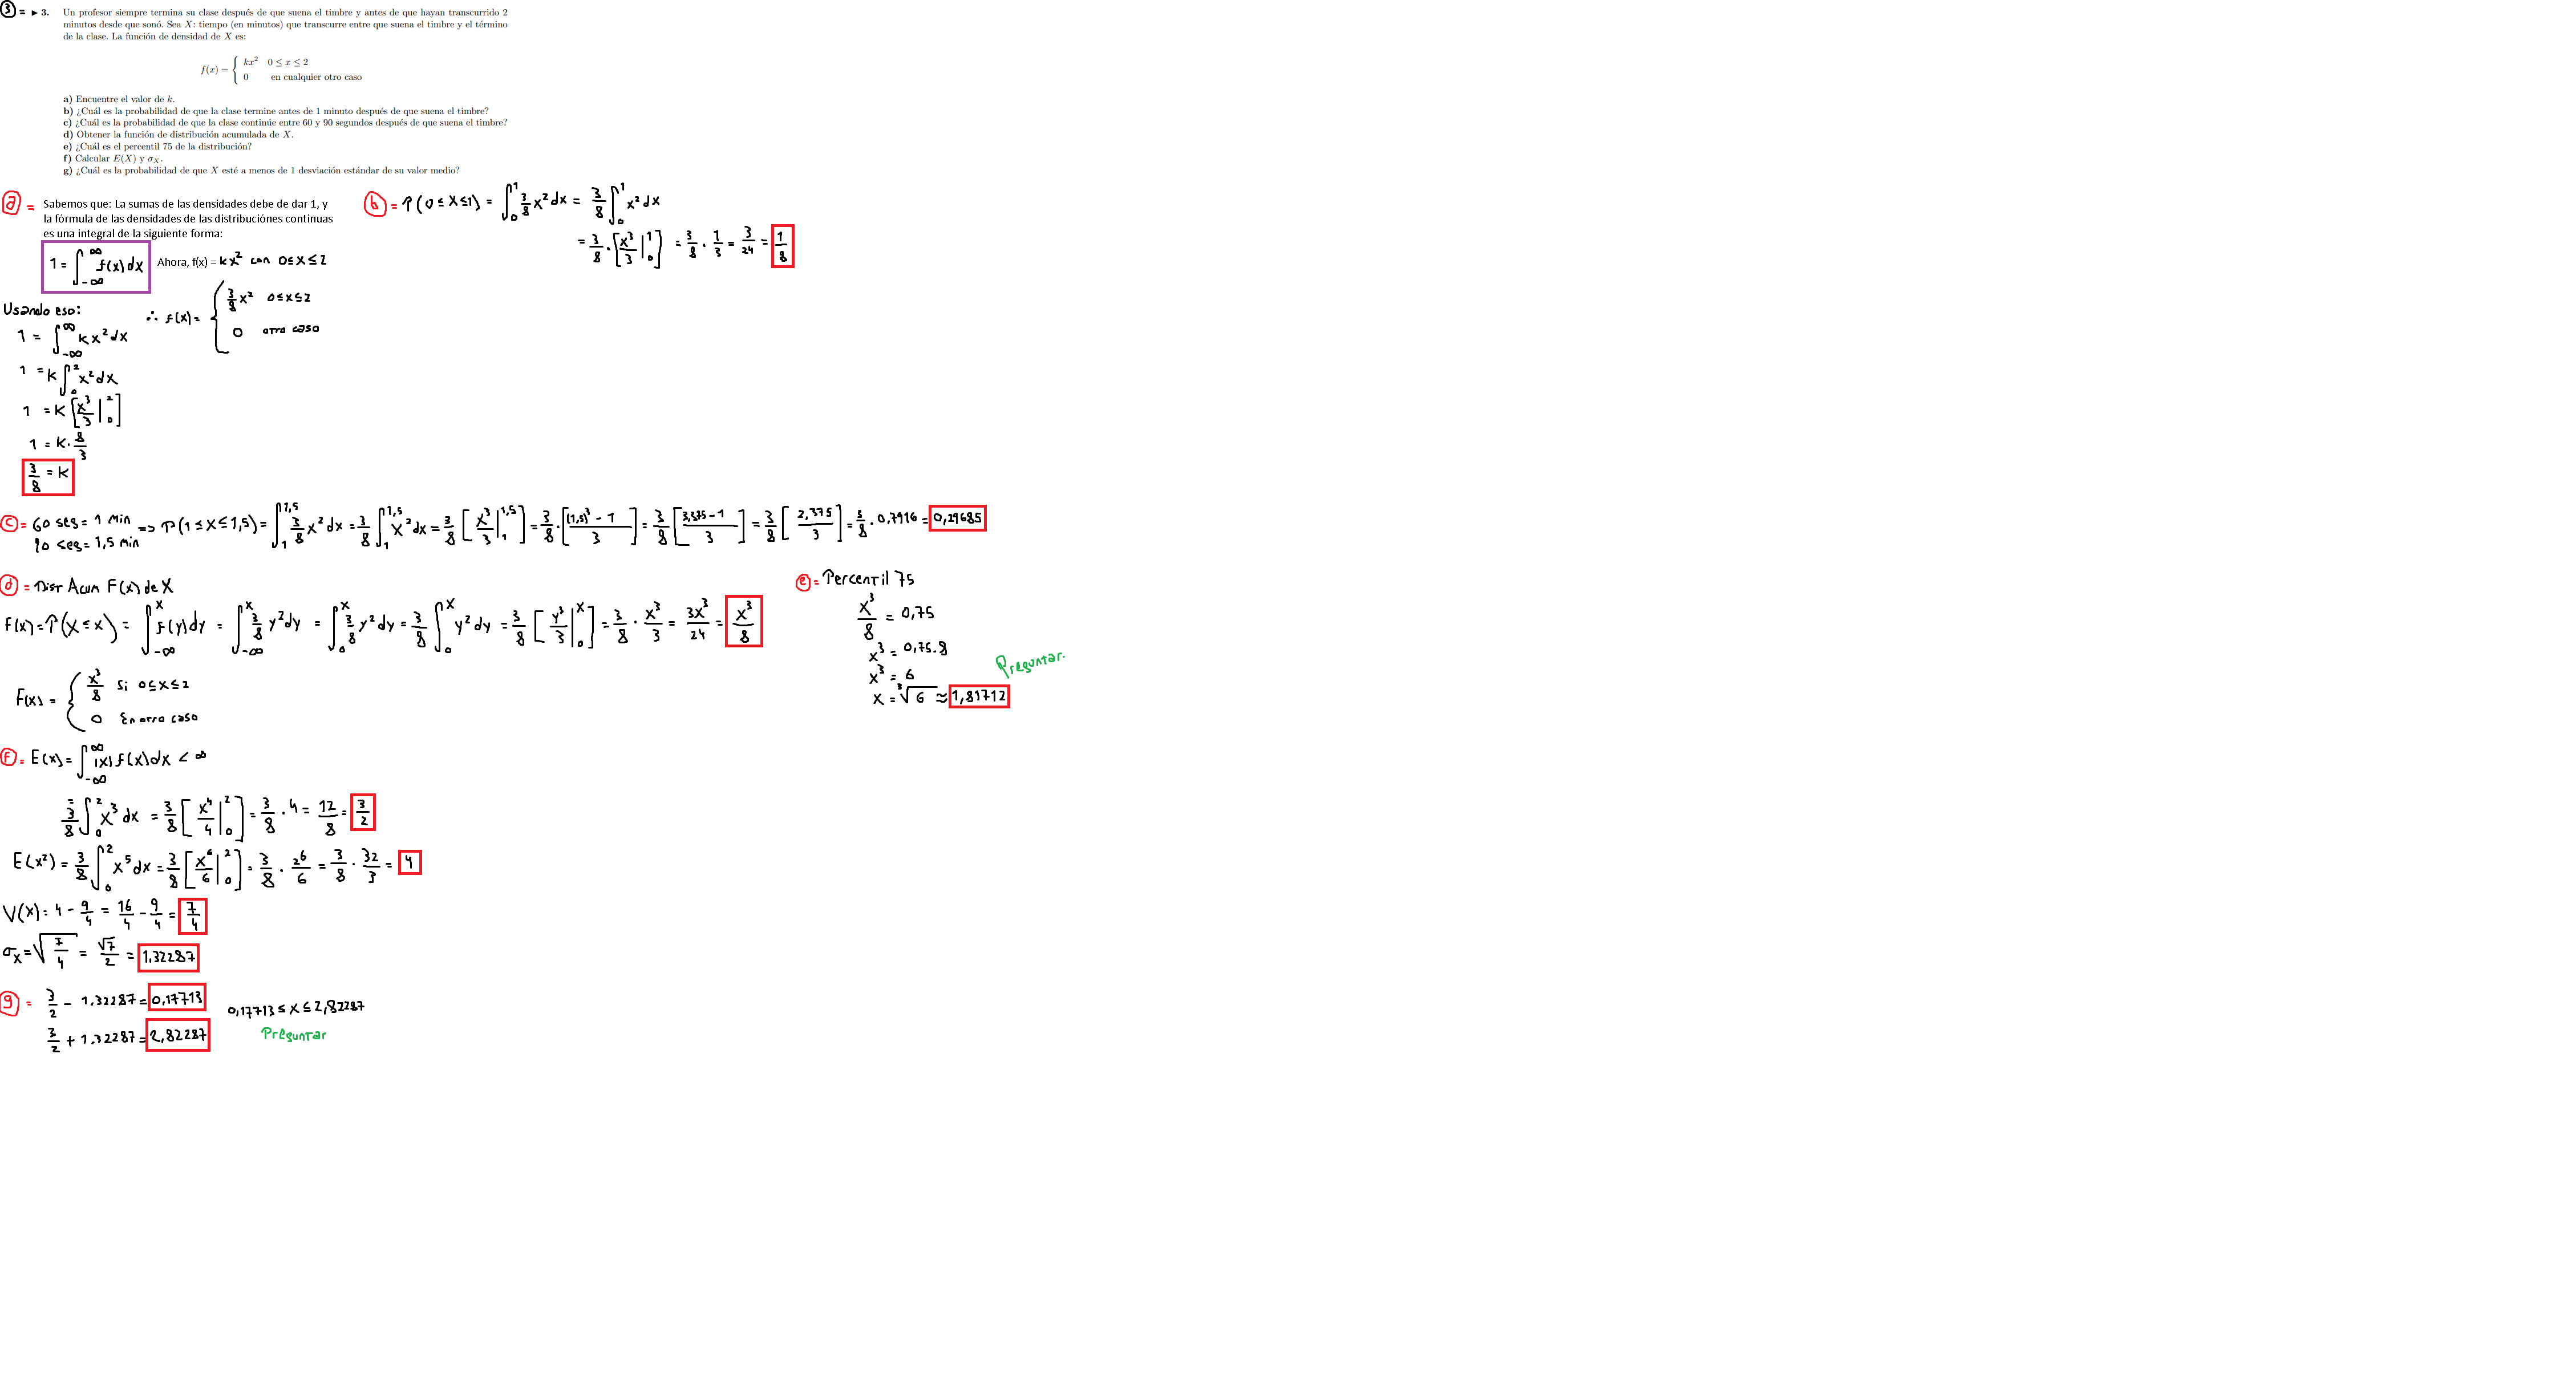 ③ = ► 3. Un profesor siempre termina su clase después de que suena el timbre y antes de que hayan transcurrido 2
minutos desde que sonó. Sea X: tiempo (en minutos) que transcurre entre que suena el timbre y el término
de la clase. La función de densidad de X es:
f(x) = { kx² 0 ≤ x ≤ 2
0 en cualquier otro caso
a) Encuentre el valor de k.
b) ¿Cuál es la probabilidad de que la clase termine antes de 1 minuto después de que suena el timbre?
c) ¿Cuál es la probabilidad de que la clase continúe entre 60 y 90 segundos después de que suena el timbre?
d) Obtener la función de distribución acumulada de X.
e) ¿Cuál es el percentil 75 de la distribución?
f) Calcular E(X) y σ_X.
g) ¿Cuál es la probabilidad de que X esté a menos de 1 desviación estándar de su valor medio?
a = Sabemos que: La sumas de las densidades debe de dar 1, y
la fórmula de las densidades de las distribuciónes continuas
es una integral de la siguiente forma:
1 = ∫_{-∞}^{∞} f(x) dx Ahora, f(x) = kx² con 0≤x≤2
Usando eso:
1 = ∫_{-∞}^{∞} kx² dx
1 = k ∫_0^2 x² dx
1 = k [x³/3 |_0^2]
1 = k · 8/3
3/8 = k
∴ f(x) = { 3/8 x² 0≤x≤2
0 otro caso
b = P(0≤x≤1) = ∫_0^1 3/8 x² dx = 3/8 ∫_0^1 x² dx
= 3/8 · [x³/3 |_0^1] = 3/8 · 1/3 = 3/24 = 1/8
c = 60 seg = 1 min => P(1≤x≤1,5) = ∫_1^{1,5} 3/8 x² dx = 3/8 ∫_1^{1,5} x² dx = 3/8 [x³/3 |_1^{1,5}] = 3/8 · [(1,5)³ - 1 / 3] = 3/8 [3,375 - 1 / 3] = 3/8 [2,375 / 3] = 3/8 · 0,7916 = 0,29685
90 seg = 1,5 min
d = Dist Acum F(x) de X
F(x) = P(X≤x) = ∫_{-∞}^x f(y) dy = ∫_{-∞}^x 3/8 y² dy = ∫_0^x 3/8 y² dy = 3/8 ∫_0^x y² dy = 3/8 [y³/3 |_0^x] = 3/8 · x³/3 = 3x³/24 = x³/8
F(x) = { x³/8 Si 0≤x≤2
0 En otro caso
e = Percentil 75
x³/8 = 0,75
x³ = 0,75·8
x³ = 6
x = ∛6 ≈ 1,81712
Preguntar.
f = E(x) = ∫_{-∞}^{∞} |x| f(x) dx < ∞
= 3/8 ∫_0^2 x³ dx = 3/8 [x⁴/4 |_0^2] = 3/8 · 4 = 12/8 = 3/2
E(x²) = 3/8 ∫_0^2 x⁵ dx = 3/8 [x⁶/6 |_0^2] = 3/8 · 2⁶/6 = 3/8 · 32/3 = 4
V(x) = 4 - 9/4 = 16/4 - 9/4 = 7/4
σ_x = √(7/4) = √7/2 = 1.32287
g = 3/2 - 1.32287 = 0,17713
3/2 + 1.32287 = 2,82287
0,17713 ≤ x ≤ 2,82287
Preguntar